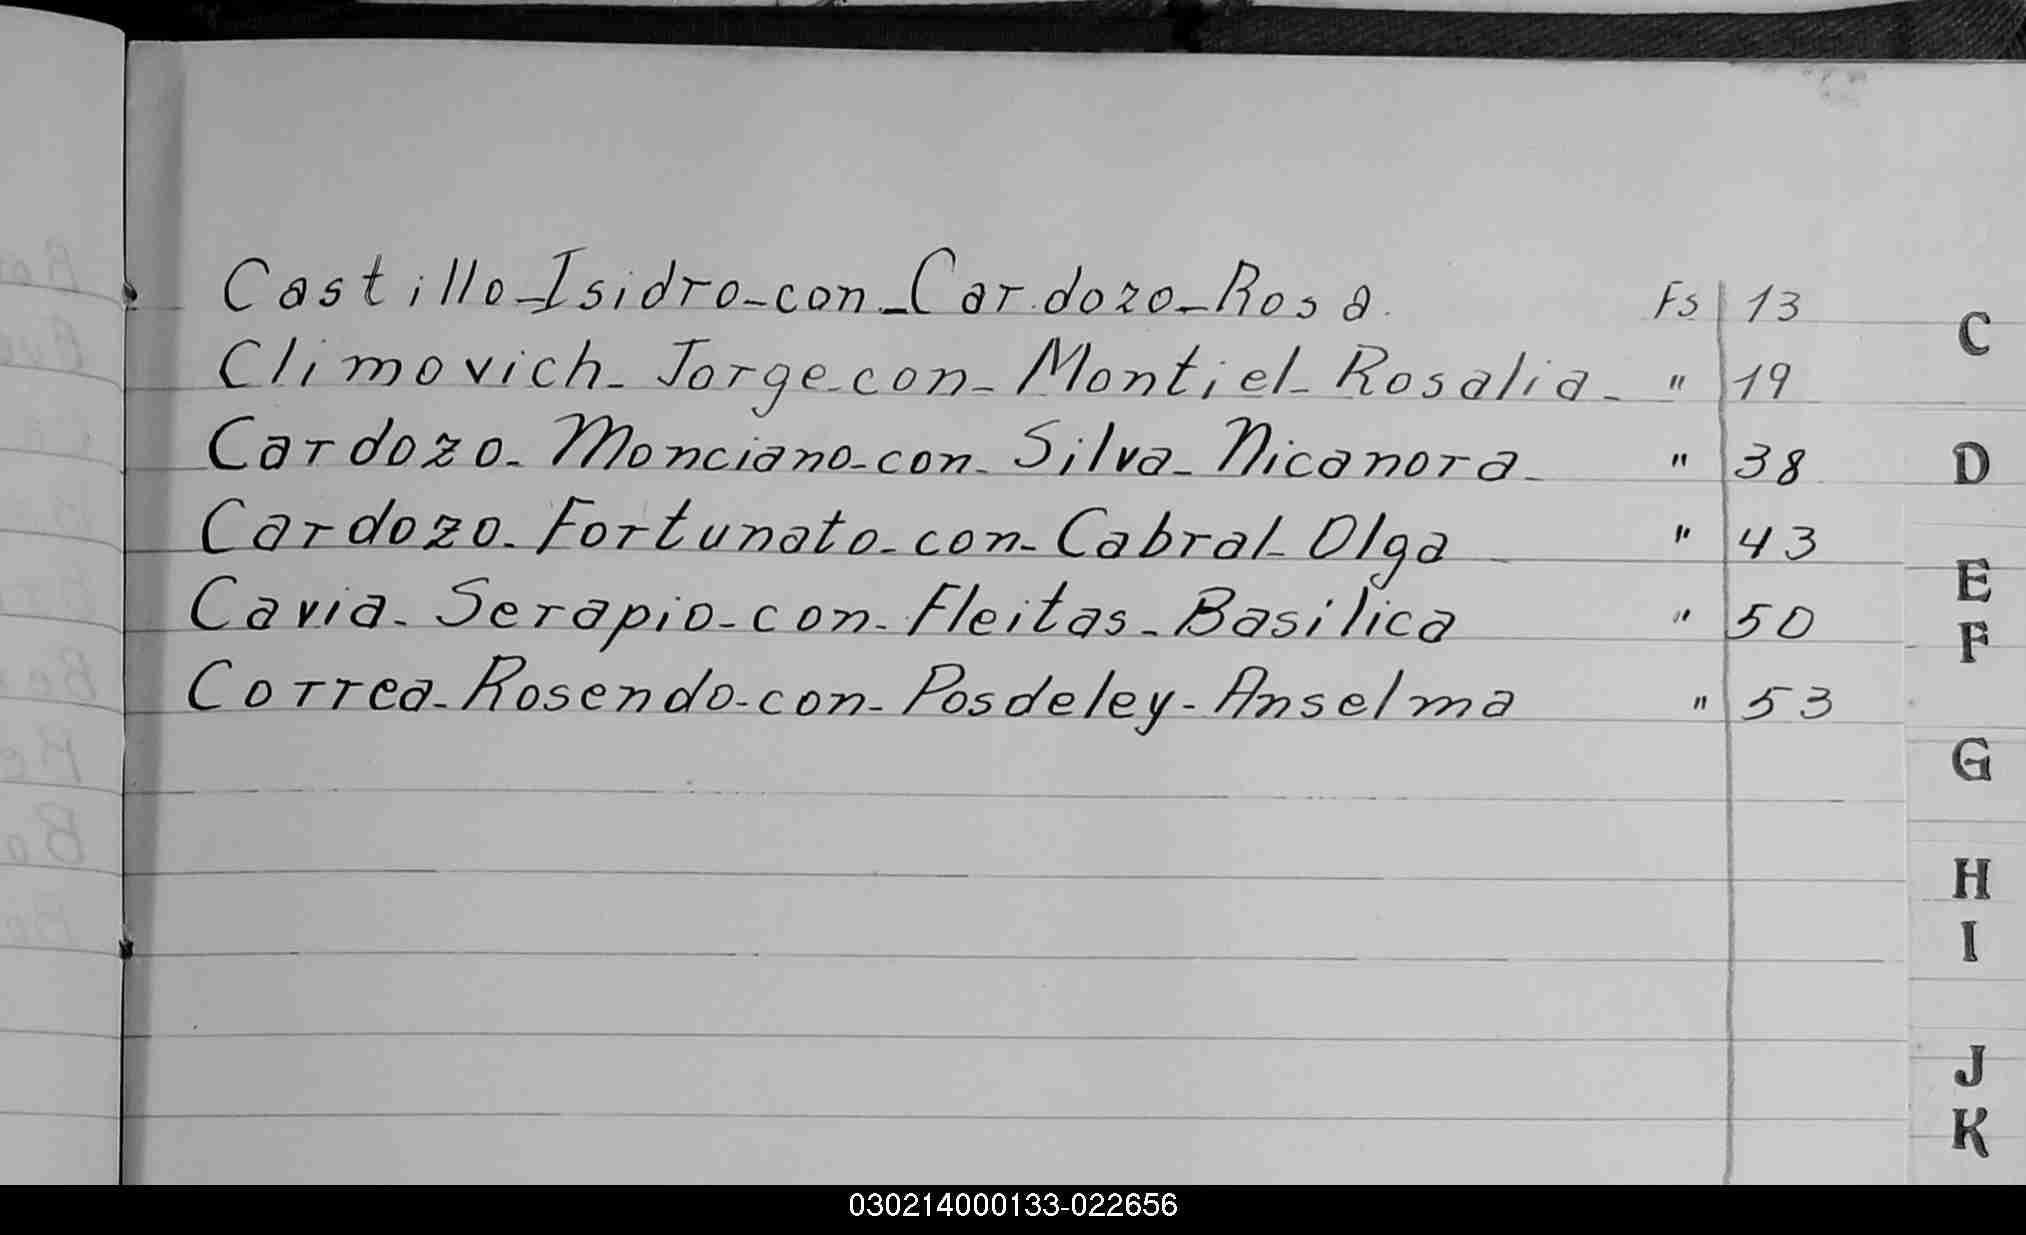 Castillo-Isidro-con-Cardozo-Rosa. Fs 13
Climovich-Jorge-con-Montiel-Rosalia- " 19
Cardozo-Monciano-con-Silva-Nicanora- " 38
Cardozo-Fortunato-con-Cabral-Olga " 43
Cavia-Serapio-con-Fleitas-Basilica " 50
Correa-Rosendo-con-Posdeley-Anselma " 53
C
D
E
F
G
H
I
J
K
030214000133-022656